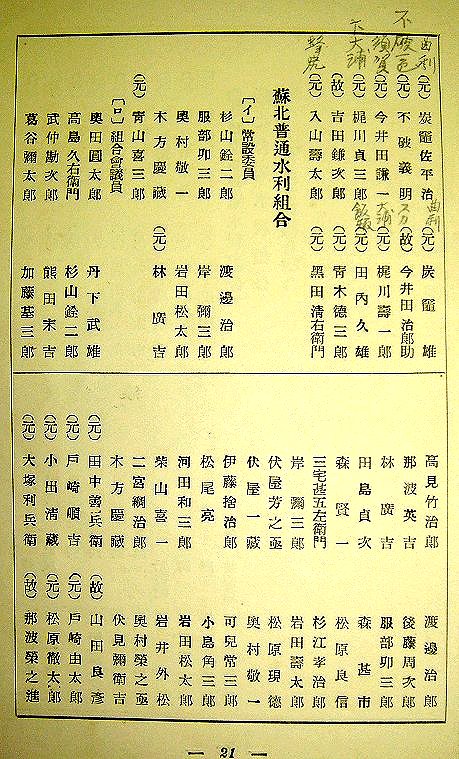 曲利
須賀
下大浦
（元）炭竈佐平治　（元）炭竈雄
（元）不破義明　（故）今井田治郎助
（元）今井田謙一　（元）梶川壽一郎
（元）梶川貞三郎　（元）田內久雄
（故）吉田鎌次郎　（元）青木德三郎
（元）入山壽太郎　（元）黑田淸右衛門
曲利
大浦
蘇北普通水利組合
〔イ〕常設委員
杉山銓二郎　渡邊治郎
服部卯三郎　岸彌三郎
奧村敬一　岩田松太郎
木方慶藏　（元）林廣吉
（元）青山喜三郎
〔ロ〕組合會議員
奧田圓太郎　丹下武雄
高島久右衛門　杉山銓二郎
武仲勘次郎　熊田末吉
葛谷彌太郎　加藤基三郎
高見竹治郎　渡邊治郎
那波英吉　後藤周次郎
林廣吉　服部卯三郎
田島貞次　森甚市
森賢一　松原良信
三宅甚五左衛門　杉江孝治郎
岸彌三郎　岩田壽太郎
伏屋芳之亟　松原現德
伏屋一藏　奧村敬一
伊藤捨治郎　可兒常三郎
松尾亮　小島角三郎
河田和三郎　岩田松太郎
柴山喜一　岩井外松
二宮綱治郎　奧村榮之亟
木方慶藏　伏見彌衛吉
（元）田中善兵衛　（故）山田良彥
（元）戶崎順吉　（元）戶崎由太郎
（元）小田淸藏　（元）松原徹太郎
（元）大塚利兵衛　（故）那波榮之進
— 21 —